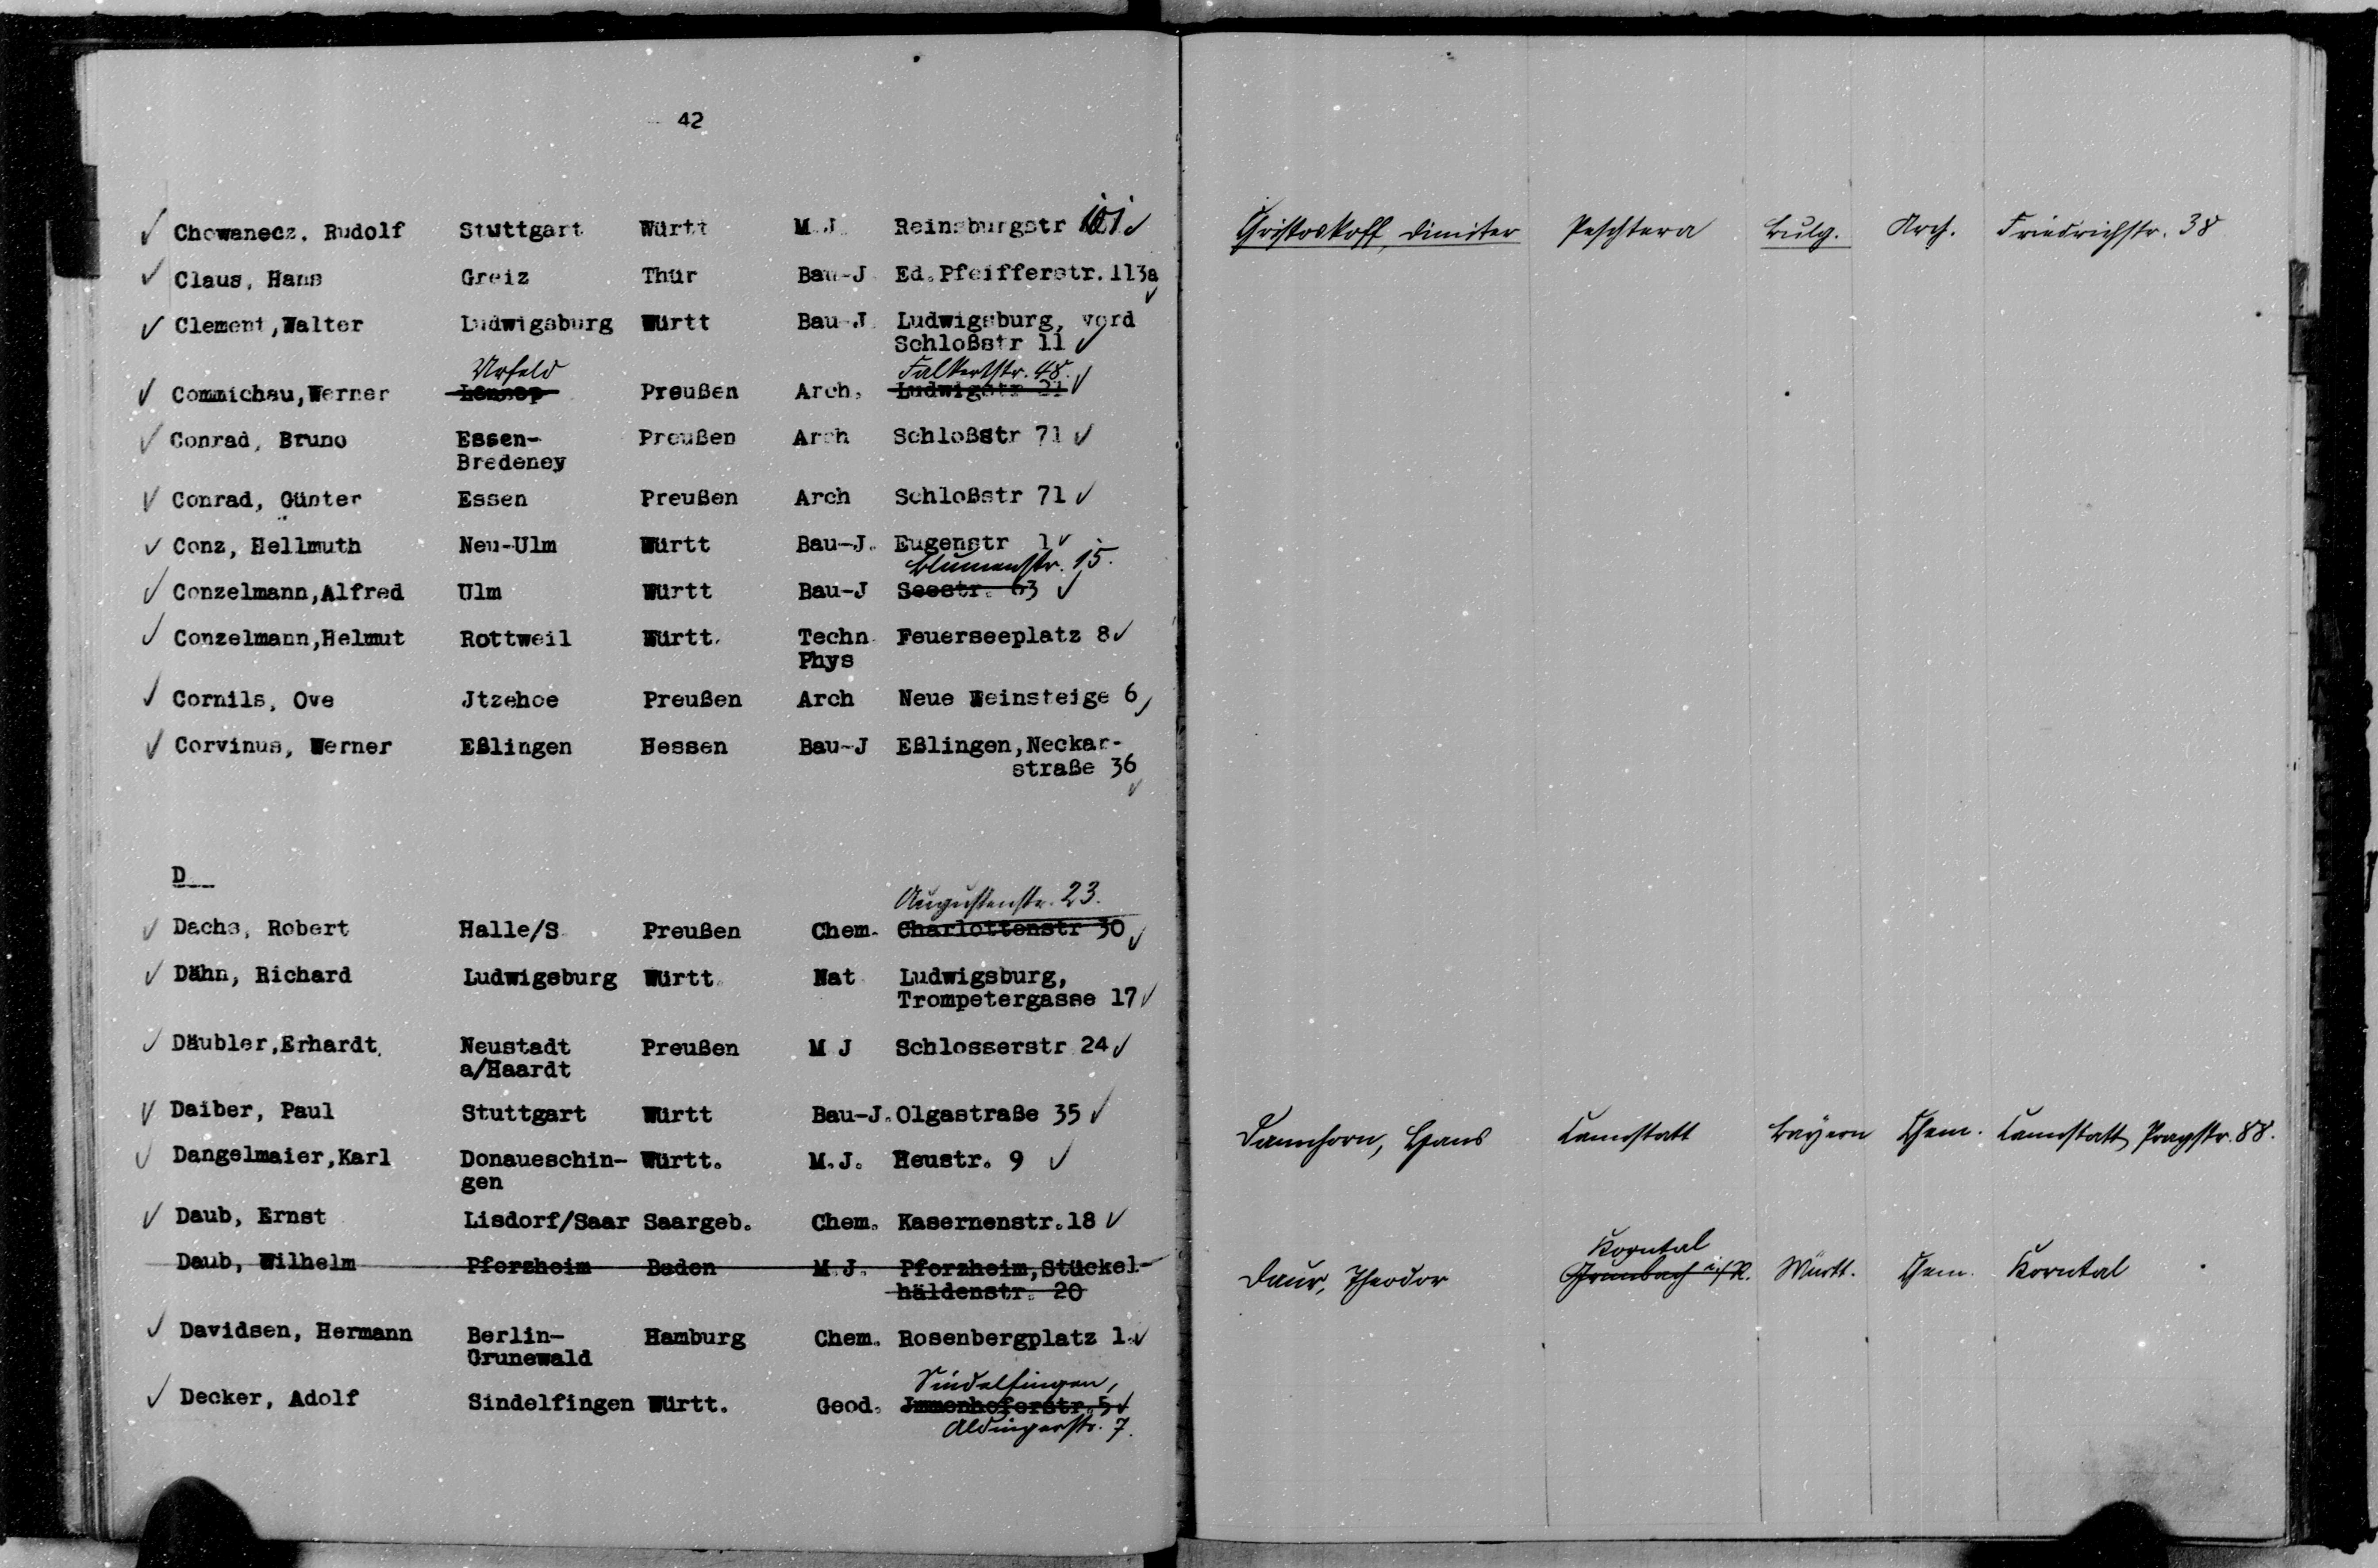 42
Chowanecz, Rudolf Stuttgart Württ M.J. Reinsburgstr 101
Claus, Hans Greiz Thür Bau-J Ed.Pfeifferstr.113a
Clement,Walter Ludwigsburg Württ Bau-J Ludwigsburg, vord
Schloßstr 11
Urfeld Falkertstr. 48.
Commichau,Werner Lennep Preußen Arch. Ludwigstr 31
Conrad, Bruno Essen- Preußen Arch Schloßstr 71
Bredeney
Conrad, Günter Essen Preußen Arch Schloßstr 71
Conz, Hellmuth Neu-Ulm Württ Bau-J. Eugenstr 1
Blumenstr. 15.
Conzelmann,Alfred Ulm Württ Bau-J Seestr. 63
Conzelmann,Helmut Rottweil Württ. Techn Feuerseeplatz 8
Phys
Cornils, Ove Jtzehoe Preußen Arch Neue Weinsteige 6
Corvinus, Werner Eßlingen Hessen Bau-J Eßlingen,Neckar-
straße 36
D
Augustenstr. 23.
Dachs, Robert Halle/S. Preußen Chem. Charlottenstr 30
Dähn, Richard Ludwigsburg Württ. Nat Ludwigsburg,
Trompetergasse 17
Däubler,Erhardt. Neustadt Preußen M J Schlosserstr 24
a/Haardt
Daiber, Paul Stuttgart Württ Bau-J. Olgastraße 35
Dangelmaier,Karl Donaueschin- Württ. M.J. Heustr. 9
gen
Daub, Ernst Lisdorf/Saar Saargeb. Chem. Kasernenstr.18
Daub, Wilhelm Pforzheim Baden M.J. Pforzheim,Stückel-
häldenstr. 20
Davidsen, Hermann Berlin- Hamburg Chem. Rosenbergplatz 1
Grunewald
Sindelfingen,
Decker, Adolf Sindelfingen Württ. Geod. Jmmenhoferstr.5
Aldingerstr. 7.
Christoskoff, Dimiter Peschtera Bulg. Arch. Friedrichstr. 38
Dannhorn, Hans Cannstatt Bayern Chem. Cannstatt, Pragstr. 88.
Korntal
Daur, Theodor Grunbach i/R. Württ. Chem. Korntal